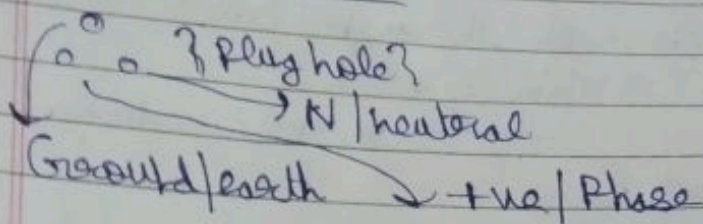 {Plug hole}
N/neutoral
Ground/earth
+ve/Phase